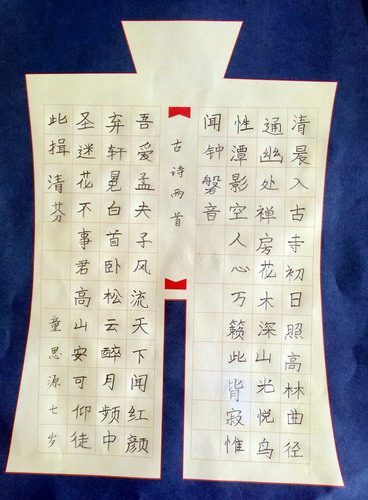 清晨入古寺初日照高林曲径
通幽处禅房花木深山光悦鸟
性潭影空人心万籁此皆寂惟
闻钟磐音
古诗两首
吾爱孟夫子风流天下闻红颜
弃轩冕白首卧松云醉月频中
圣迷花不事君高山安可仰徒
此揖清芬
童思源七岁